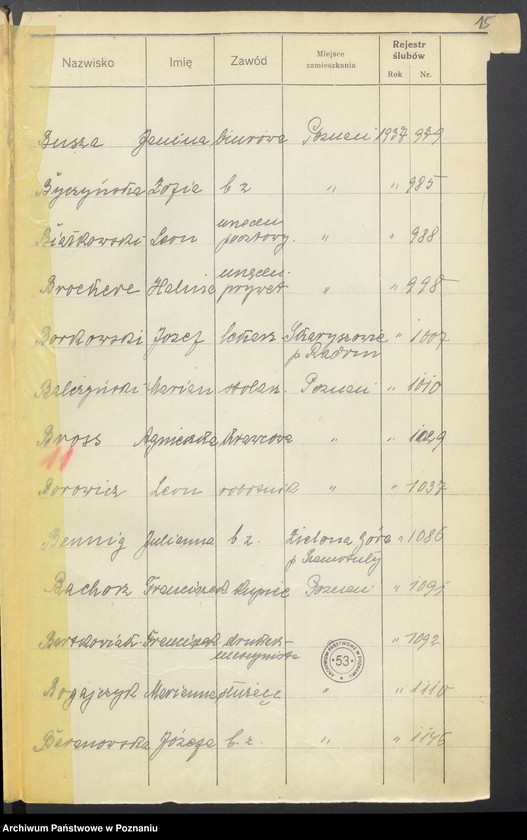 15
Nazwisko Imię Zawód Miejsce zamieszkania Rejestr ślubów
Rok Nr.
Busza Janina biurowa Poznań 1937 979
Byczyńska Zofia b z " " 985
Białkowski Leon urzędn pocztowy " " 988
Brockere Halina urzędn. prywat " " 998
Borkowski Józef lekarz Skaryszewie p Radom " 1007
Balczyński Marian stolarz Poznań " 1010
Bross Agnieszka krawcowa " " 1029
11
Borowicz Leon robotnik " " 1037
Bennig Julianna b z. Zielona Góra p Szamotuły " 1086
Bachorz Franciszek kupiec Poznań " 1091
Bartkowiak Franciszek drukarz- maszynista " 1092
ARCHIWUM PAŃSTWOWE W POZNANIU 53
Bogajczyk Marianna służąca " " 1110
Baranowska Józefa b. z. " " 1146
Archiwum Państwowe w Poznaniu